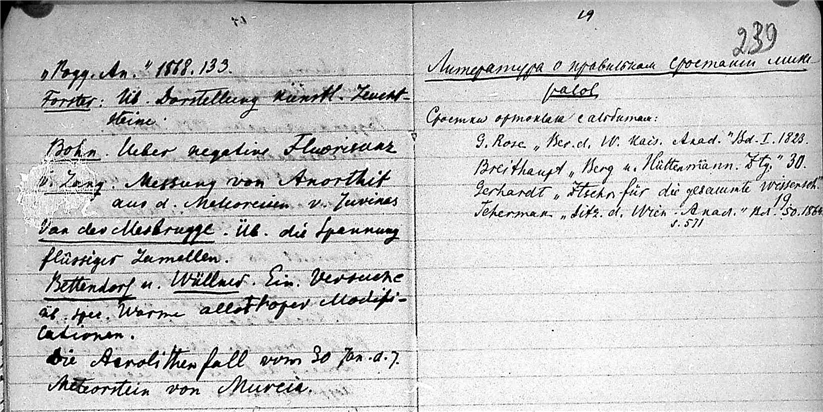 „Pogg. An." 1868. 133.
Forster: Üb. Darstellung künstl. Leucht-
steine.
Bohn. Ueber negative Fluorisenz
v. Lang. Messung von Anorthit
aus d. Meteoreisen v. Juvinas
Van der Mesbrugge. Üb. die Spannung
flüssiger Lamellen.
Bettendorf u. Wüllner. Ein. Versuche
üb. spec. Wärme allotroper Modifi-
cationen.
Die Aerolithenfall vom 30 Jan. d. J.
Meteorstein von Murcia.
19
239
Литература о правильном сростании мине-
ралов
Сростки ортоклаза с альбитом:
G. Rose „Ber. d. W. Kais. Acad." Bd. I. 1823.
Breithaupt „Berg u. Hüttenmänn. Ztg" 30.
Gerhardt „Ztschr. für die gesammte Wissensch."
19
Tchermak „Sitz. d. Wien. Acad." Bd. 50. 1864
S. 571